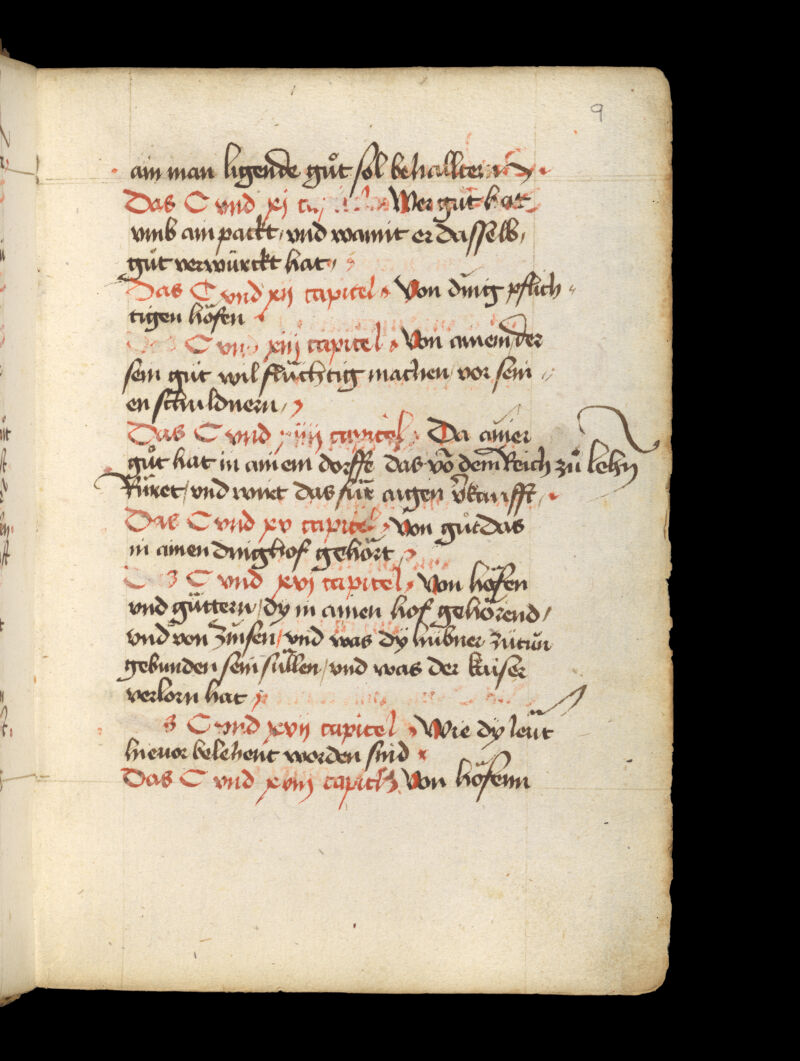 9
ain man ligende guͦt sol behallten
Das C vnd xj Wer gut hat
vmb ain packt / vnd wamit er dasselb /
guͦt verwürckt hat /
Das C vnd xij capitel Von ding pflich=
tigen höfen
C vnd xiij capitel Von ainem der
sein guͦt wil flüchtig machen / vor sein=
en schuldnern /
Das C vnd xiiij capitel Da ainer
guͦt hat in ainem dorffe das vō dem Reich zuͦ lehn̄
Rüret / vnd wirt das für aigen v̄kaufft /
Das C vnd xv capitel Von guͦt das
in ainen dinghof gehört
C vnd xvj capitel Von höfen
vnd güttern / dy in ainen hof gehörend /
vnd von zinsen / vnd was dy hübner zutun
gebunden sein süllen / vnd was der kaiser
verlorn hat
s C vnd xvij capitel Wie dy leüt
hieuor belehent worden sind
Das C vnd xviij capitel Von höfenn